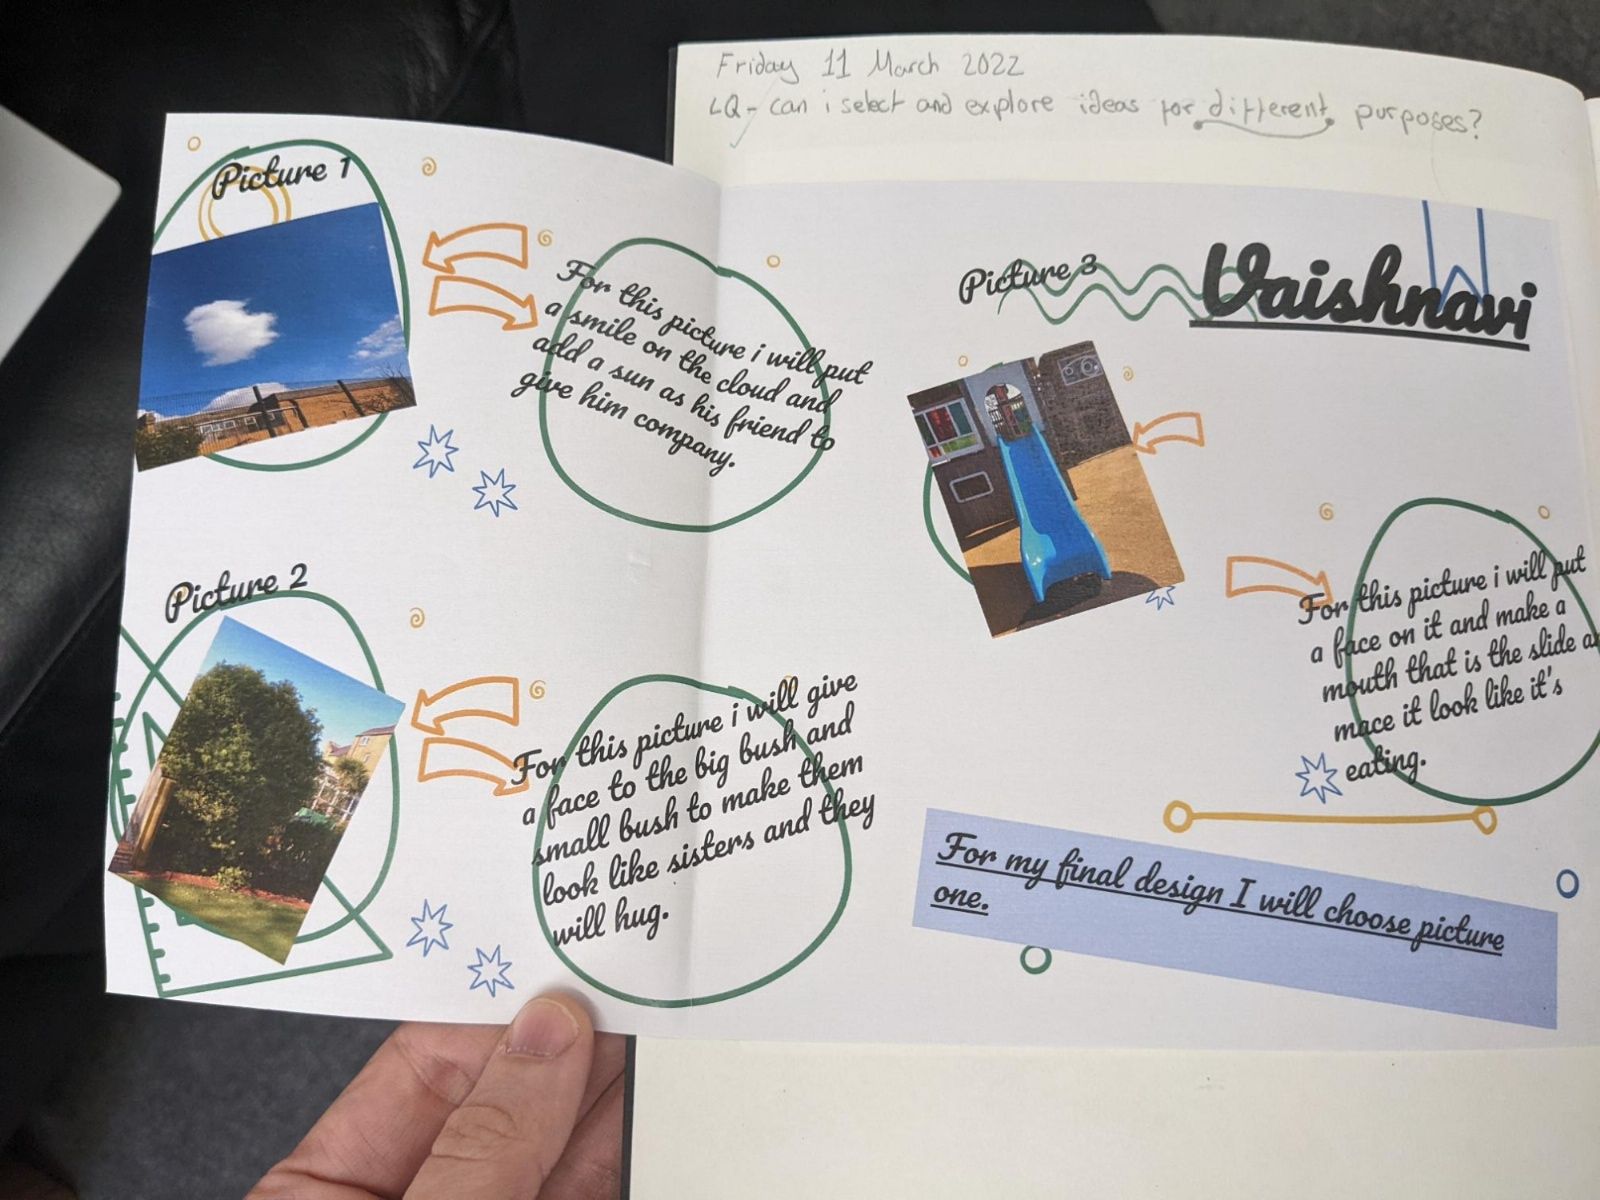 Friday 11 March 2022
LQ - can i select and explore ideas for different purposes?
Picture 1
For this picture i will put
a smile on the cloud and
add a sun as his friend to
give him company.
Picture 2
For this picture i will give
a face to the big bush and
small bush to make them
look like sisters and they
will hug.
Vaishnavi
Picture 3
For this picture i will put
a face on it and make a
mouth that is the slide
mace it look like it's
eating.
For my final design I will choose picture
one.